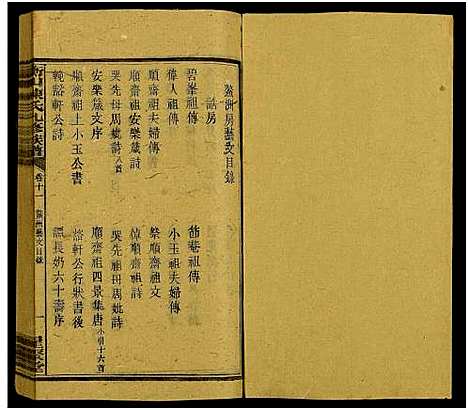 鰲洲房藝文目錄
誥房
碧峯祖傳
節菴祖傳
偉人祖傳
小玉祖夫婦傳
順齋祖夫婦傳
祭順齋祖文
順齋祖安樂箴
悼順齋祖詩
哭先母周妣詩八首
哭先祖母周妣詩
安樂箴支序
順齋祖四景集唐小引十六首
順齋祖上小玉公書
裕軒公行狀書後
輓裕軒公詩
譔長奶六十壽序
衡山陳氏九修族譜
卷十一
鰲洲藝文目錄
一